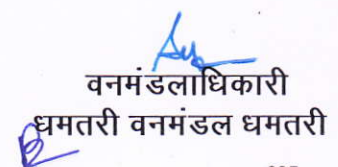 वनमंडलाधिकारी
धमतरी वनमंडल धमतरी